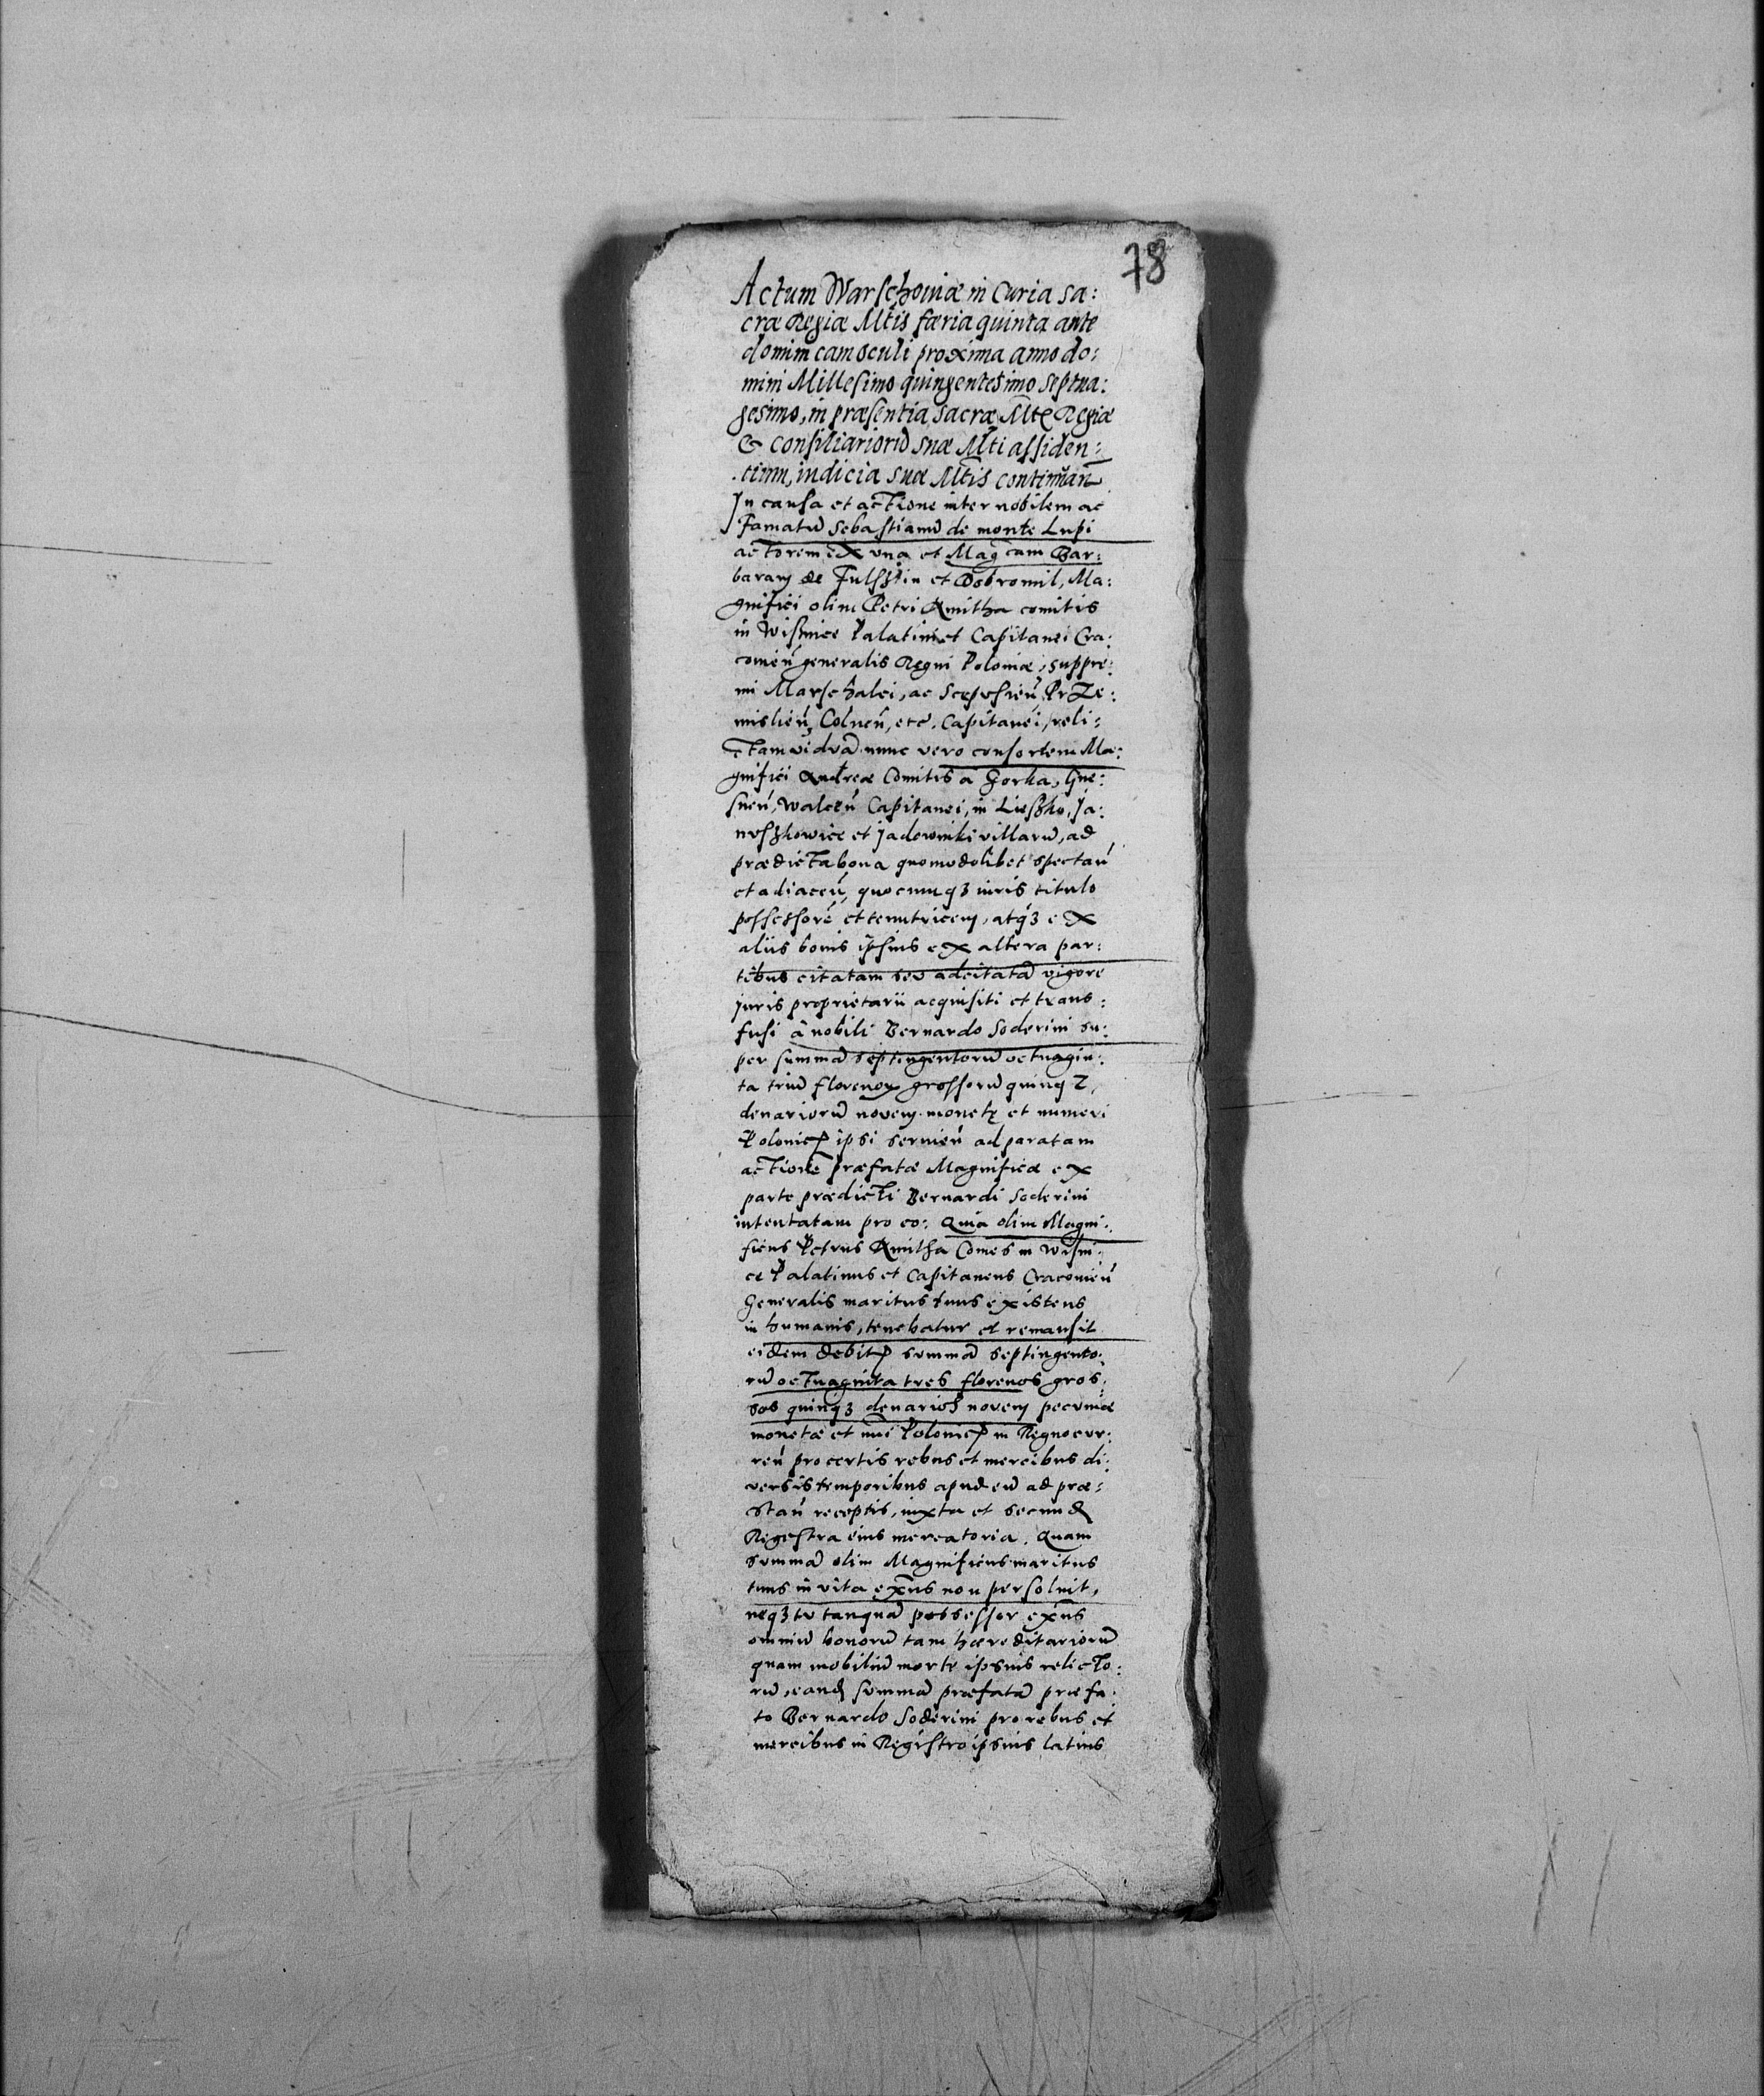 78
Actum Warschoviæ in Curia sa:
cræ Regiæ Mtis færia quinta ante
dominicam Oculi proxima anno do:
mini Millesimo quingentesimo septua:
gesimo, in præsentia sacræ Mtę Regiæ
& consiliariorū suæ Mti assiden:
tium, iudicia suæ Mtis continuan̄
In causa et actione inter nobilem ac
Famatū Sebastianū de monte Lupi
actorem ex una et Magcam Bar:
baram de Fulsstin et Dobromil, Ma:
gnifici olim Petri Kmitha comitis
in Wisznice Palatini et Capitanei Cra:
covień generalis Regni Poloniæ, suppre:
mi Marschalci, ac Scepusień, Prze:
mislień, Colneń, etc. Capitanei, reli:
ctam viduā nunc vero consortem Ma:
gnifici Andreæ Comitis a Gorka, Gne:
sneń, Walceń Capitanei, in Lieszko, Ja:
nusszkowice et Jadowniki villarū, ad
prædicta bona quomodolibet spectań
et adiaceń, quocunqȝ iuris titulo
possessorē et tenutricem, atqȝ ex
aliis bonis ipsius ex altera par:
tibus citatam seu adcitatā vigore
juris proprietarii acquisiti et trans:
fusi à nobili Bernardo Soderini su:
per summā septingentorū octuagin:
ta triū florenoꝝ grossorū quinqȝ,
denariorū novem monetę et numeri
Polonic̄ ipsi servień ad paratam
actionē præfatæ Magnificæ ex
parte prædicti Bernardi Soderini
intentatam pro eo: Quia olim Magni:
ficus Petrus Kmitha Comes in Wisni:
ce Palatinus et Capitaneus Cracovień
Generalis maritus tuus existens
in humanis, tenebatur et remansit
eidem debitꝰ summā septingento:
rū octuaginta tres florenos gros:
sos quinqȝ denarios novem pecuniæ
monetæ et nui Polonic̄ in Regno cur:
reń pro certis rebus et mercibus di:
versis temporibus apud eū ad præ:
stań receptis, iuxta et secund
Regestra eius mercatoria. Quam
summā olim Magnificus maritus
tuus in vita exns non persolvit,
neqȝ tu tanquā possessor exns
omniū bonorū tam hæreditariorū
quam mobiliū morte ipsius relicto:
rū, eand summā præfatā præfa:
to Bernardo Soderini pro rebus et
mercibus in Registro ipsius latius